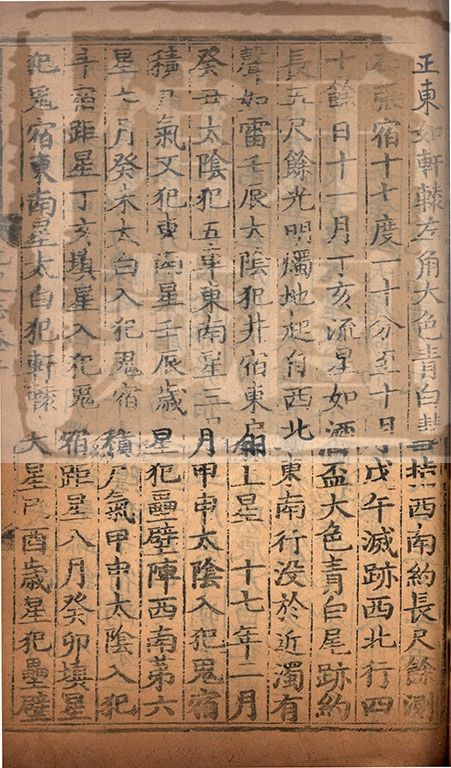 正東如軒轅左角大色青白彗芒指西南約長尺餘測
在張宿十七度一十分至十日戊午滅跡西北行四
十餘日十一月丁亥流星如酒盃大色青白尾跡約
長五尺餘光明燭地起自西北東南行没於近濁有
聲如雷壬辰太陰犯井宿東扇上星 十七年二月
癸丑太陰犯五車東南星三月甲申太陰入犯鬼宿
積尸氣又犯東南星壬辰歲星犯壘壁陣西南第六
星七月癸未太白入犯鬼宿積尸氣甲申太陰入犯
斗宿距星丁亥填星入犯鬼宿距星八月癸卯填星
犯鬼宿東南星太白犯軒轅大星己酉歲星犯壘壁